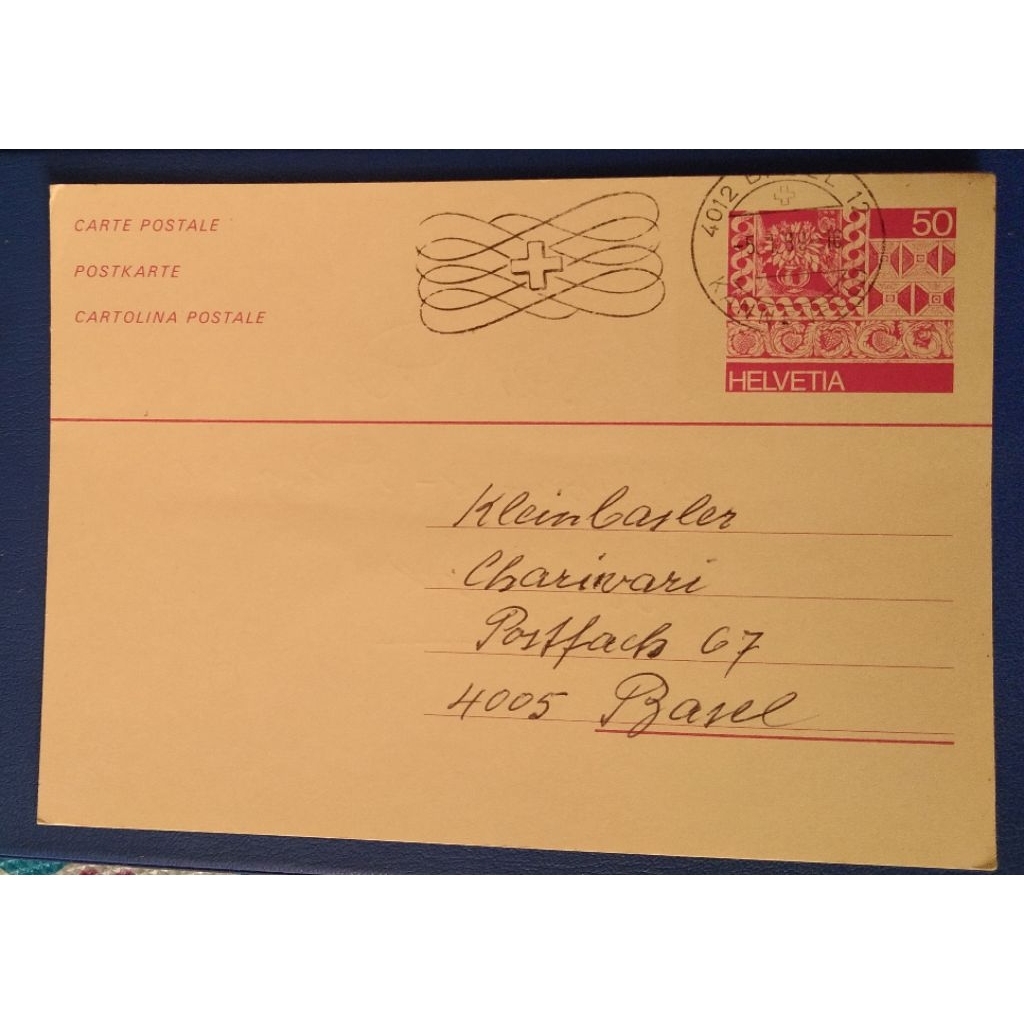 CARTE POSTALE
POSTKARTE
CARTOLINA POSTALE
4012 BASEL 12
50
HELVETIA
Kleinbasler
Charivari
Postfach 67
4005 Basel